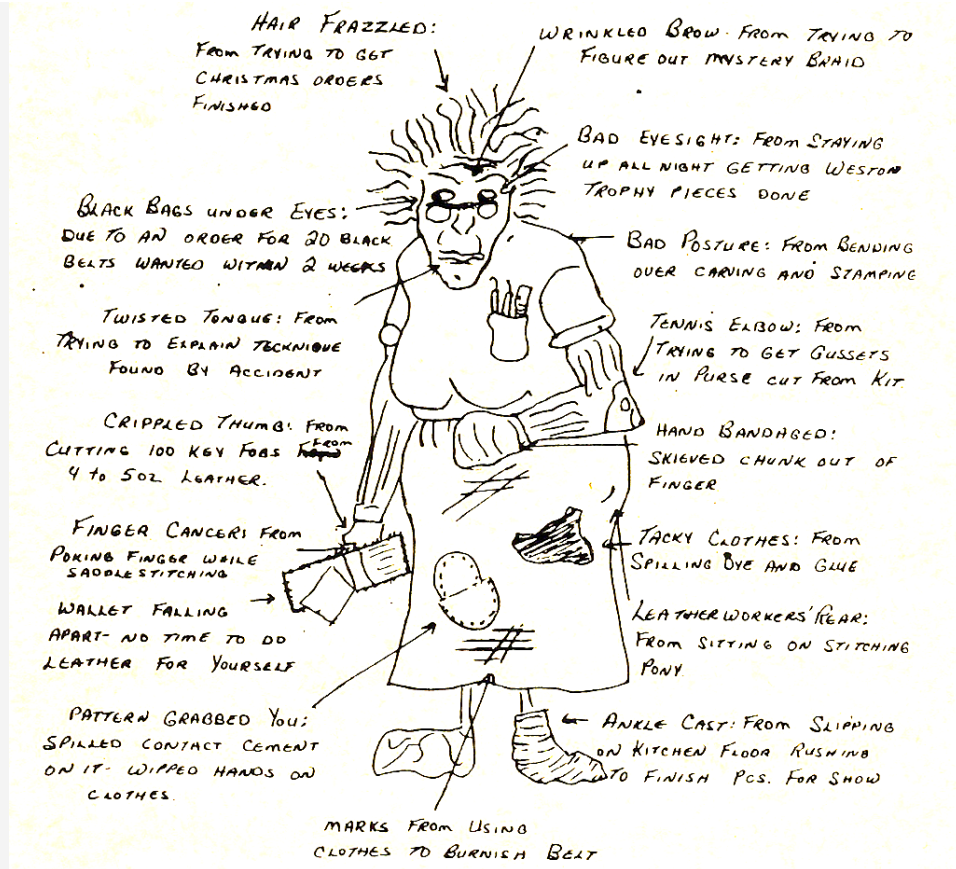 HAIR FRAZZLED:
FROM TRYING TO GET
CHRISTMAS ORDERS
FINISHED
WRINKLED BROW. FROM TRYING TO
FIGURE OUT MYSTERY BRAID
BAD EYESIGHT: FROM STAYING
UP ALL NIGHT GETTING WESTON
TROPHY PIECES DONE
BLACK BAGS UNDER EYES:
DUE TO AN ORDER FOR 20 BLACK
BELTS WANTED WITHIN 2 WEEKS
BAD POSTURE: FROM BENDING
OVER CARVING AND STAMPING
TWISTED TONGUE: FROM
TRYING TO EXPLAIN TECKNIQUE
FOUND BY ACCIDENT
TENNIS ELBOW: FROM
TRYING TO GET GUSSETS
IN PURSE CUT FROM KIT
CRIPPLED THUMB: FROM
CUTTING 100 KEY FOBS FROM
4 to 5 OZ LEATHER.
HAND BANDAGED:
SKIEVED CHUNK OUT OF
FINGER
FINGER CANCER: FROM
POKING FINGER WHILE
SADDLE STITCHING
TACKY CLOTHES: FROM
SPILLING DYE AND GLUE
WALLET FALLING
APART- NO TIME TO DO
LEATHER FOR YOURSELF
LEATHERWORKERS' REAR:
FROM SITTING ON STITCHING
PONY
PATTERN GRABBED YOU:
SPILLED CONTACT CEMENT
ON IT- WIPPED HANDS ON
CLOTHES.
ANKLE CAST: FROM SLIPPING
ON KITCHEN FLOOR RUSHING
TO FINISH PCS. FOR SHOW
MARKS FROM USING
CLOTHES TO BURNISH BELT